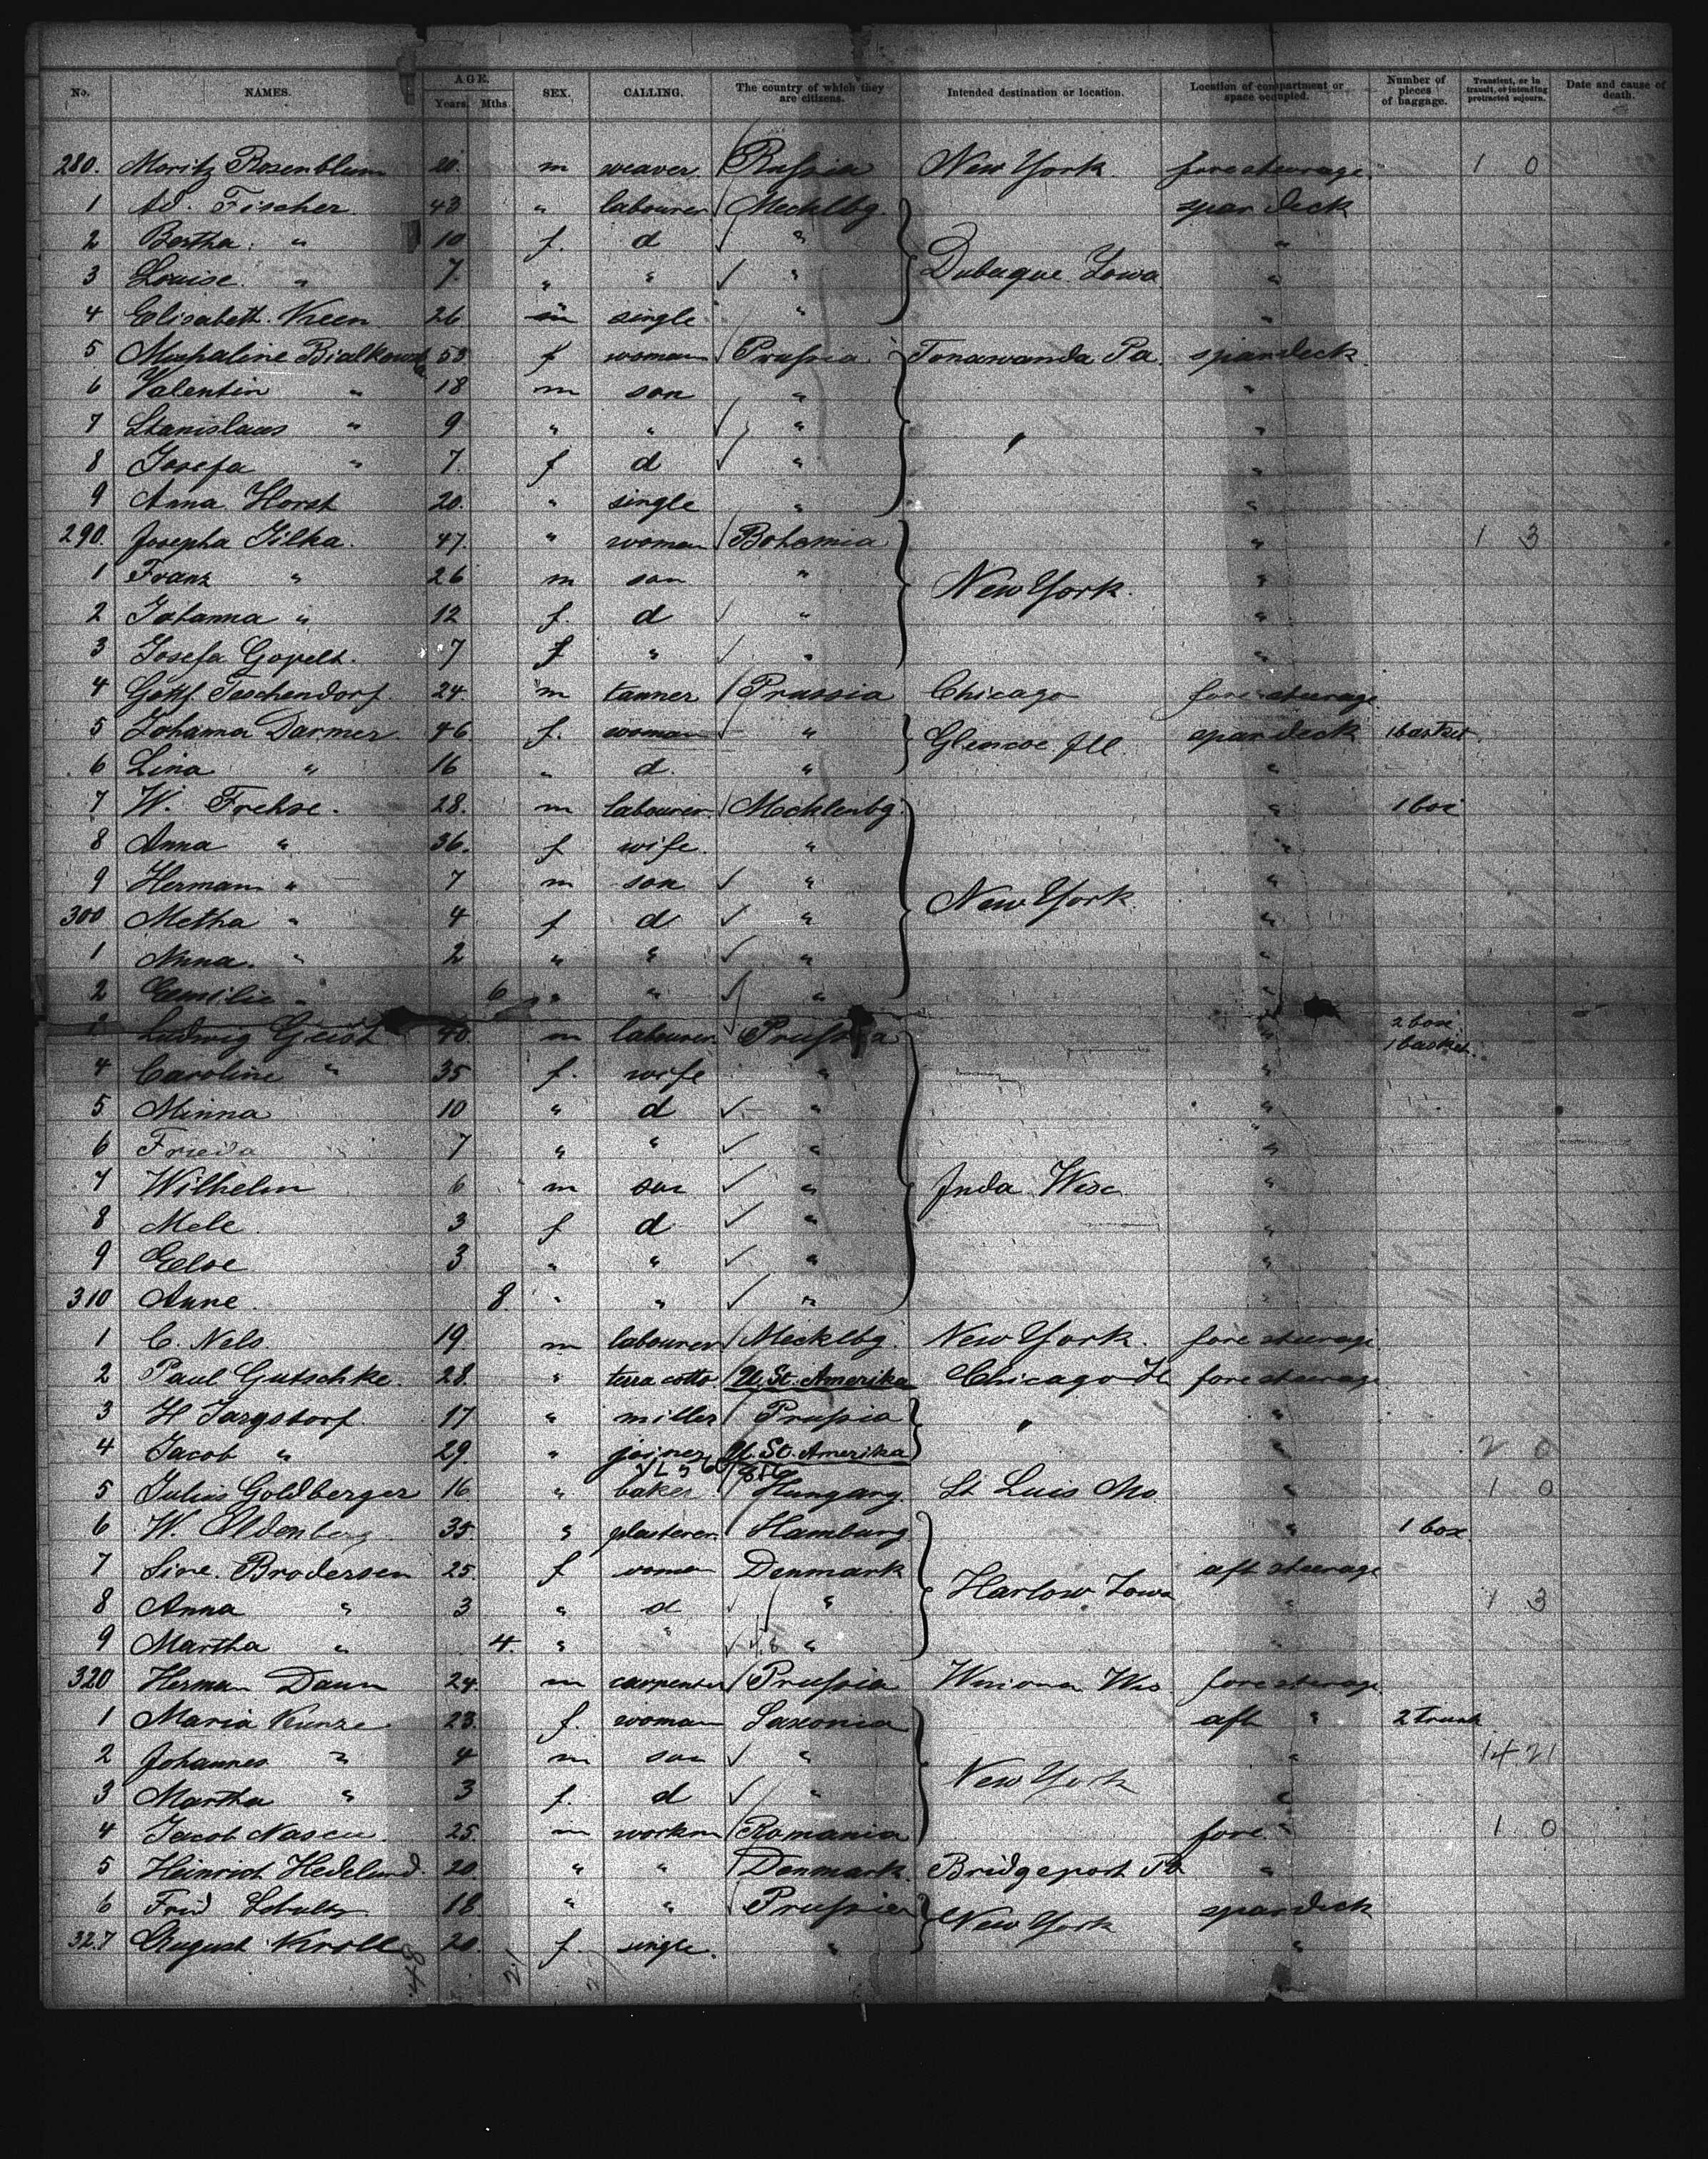 No. NAMES. AGE. Years. Mths. SEX. CALLING. The country of which they are citizens. Intended destination or location. Location of compartment or space occupied. Number of pieces of baggage. Transient, or in transit, or intending protracted sojourn. Date and cause of death.
280. Moritz Rosenblum 20. m weaver Russia New York. fore steerage. 1 0
1 Ad. Fischer. 43 " labourer Mecklbg. spar deck
2 Bertha. " 10 f. d "
3 Louise. " 7. " " " Dubuque Iowa "
4 Elisabeth. Kreen 26 m single " "
5 Michaline Bialkowsk 53 f woman Prussia Tonawanda Pa. spardeck
6 Valentin " 18 m son " "
7 Stanislaus " 9 " " " "
8 Josefa " 7. f d " "
9 Anna Horst 20. " single " "
290. Josepha Jilka. 47. " woman Bohemia " 1 3
1 Franz " 26 m son " New York. "
2 Johanna " 12 f. d " "
3 Josefa Gopelt. 7 f " " "
4 Gottf. Teschendorf 24. m tanner Prussia Chicago fore steerage
5 Johanna Darmer 46. f. woman " Glencoe Ill. spardeck 1 basket.
6 Lina " 16 " d. " "
7 W. Frehse. 28. m labourer. Mecklenbg. " 1 box
8 Anna " 36. f wife. " "
9 Hermann " 7 m son " New York. "
300 Metha " 4 f d " "
1 Anna. " 2 " " " "
2 Emilie " 6 " " " "
3 Ludwig Geist 40. m labourer Prussia " 2 box 1 basket.
4 Caroline " 35 f. wife " "
5 Minna 10 " d " "
6 Frieda 7 " " " "
7 Wilhelm 6 m son " Juda Wisc. "
8 Mele 3 f d " "
9 Else 3 " " " "
310 Anne. 8. " " " "
1 C. Nels. 19. m labourer Mecklbg. New York. fore steerage.
2 Paul Gutschke. 28. " terra cotta U. St. Amerika Chicago Il fore steerage
3 H Jargstorf. 17 " miller Prussia " "
4 Jacob " 29. " joiner U. St. Amerika " 2 0
5 Julius Goldberger 16. " baker Hungary. St Luis Mo. " 1 0
6 W. Oldenberg 35. " plasterer Hamburg " 1 box
7 Sine. Brodersen 25. f woman Denmark Harlow Iowa aft steerage
8 Anna " 3 " d " " 1 3
9 Martha " 4. " " " "
320 Herman Daun 24. m carpenter Prussia Winona Wis fore steerage.
1 Maria Kunze 23. f. woman Saxonia aft " 2 trunk
2 Johannes " 4 m son " New York " 14 21
3 Martha " 3 f. d " "
4 Jacob Nascu. 25. m workm Romania fore. " 1 0
5 Heinrich Hedelund. 20. " " Denmark. Bridgeport "
6 Fried Schultz. 18. " " Prussia New York spardeck
327 August Kroll 20. f. single. " "
48 21